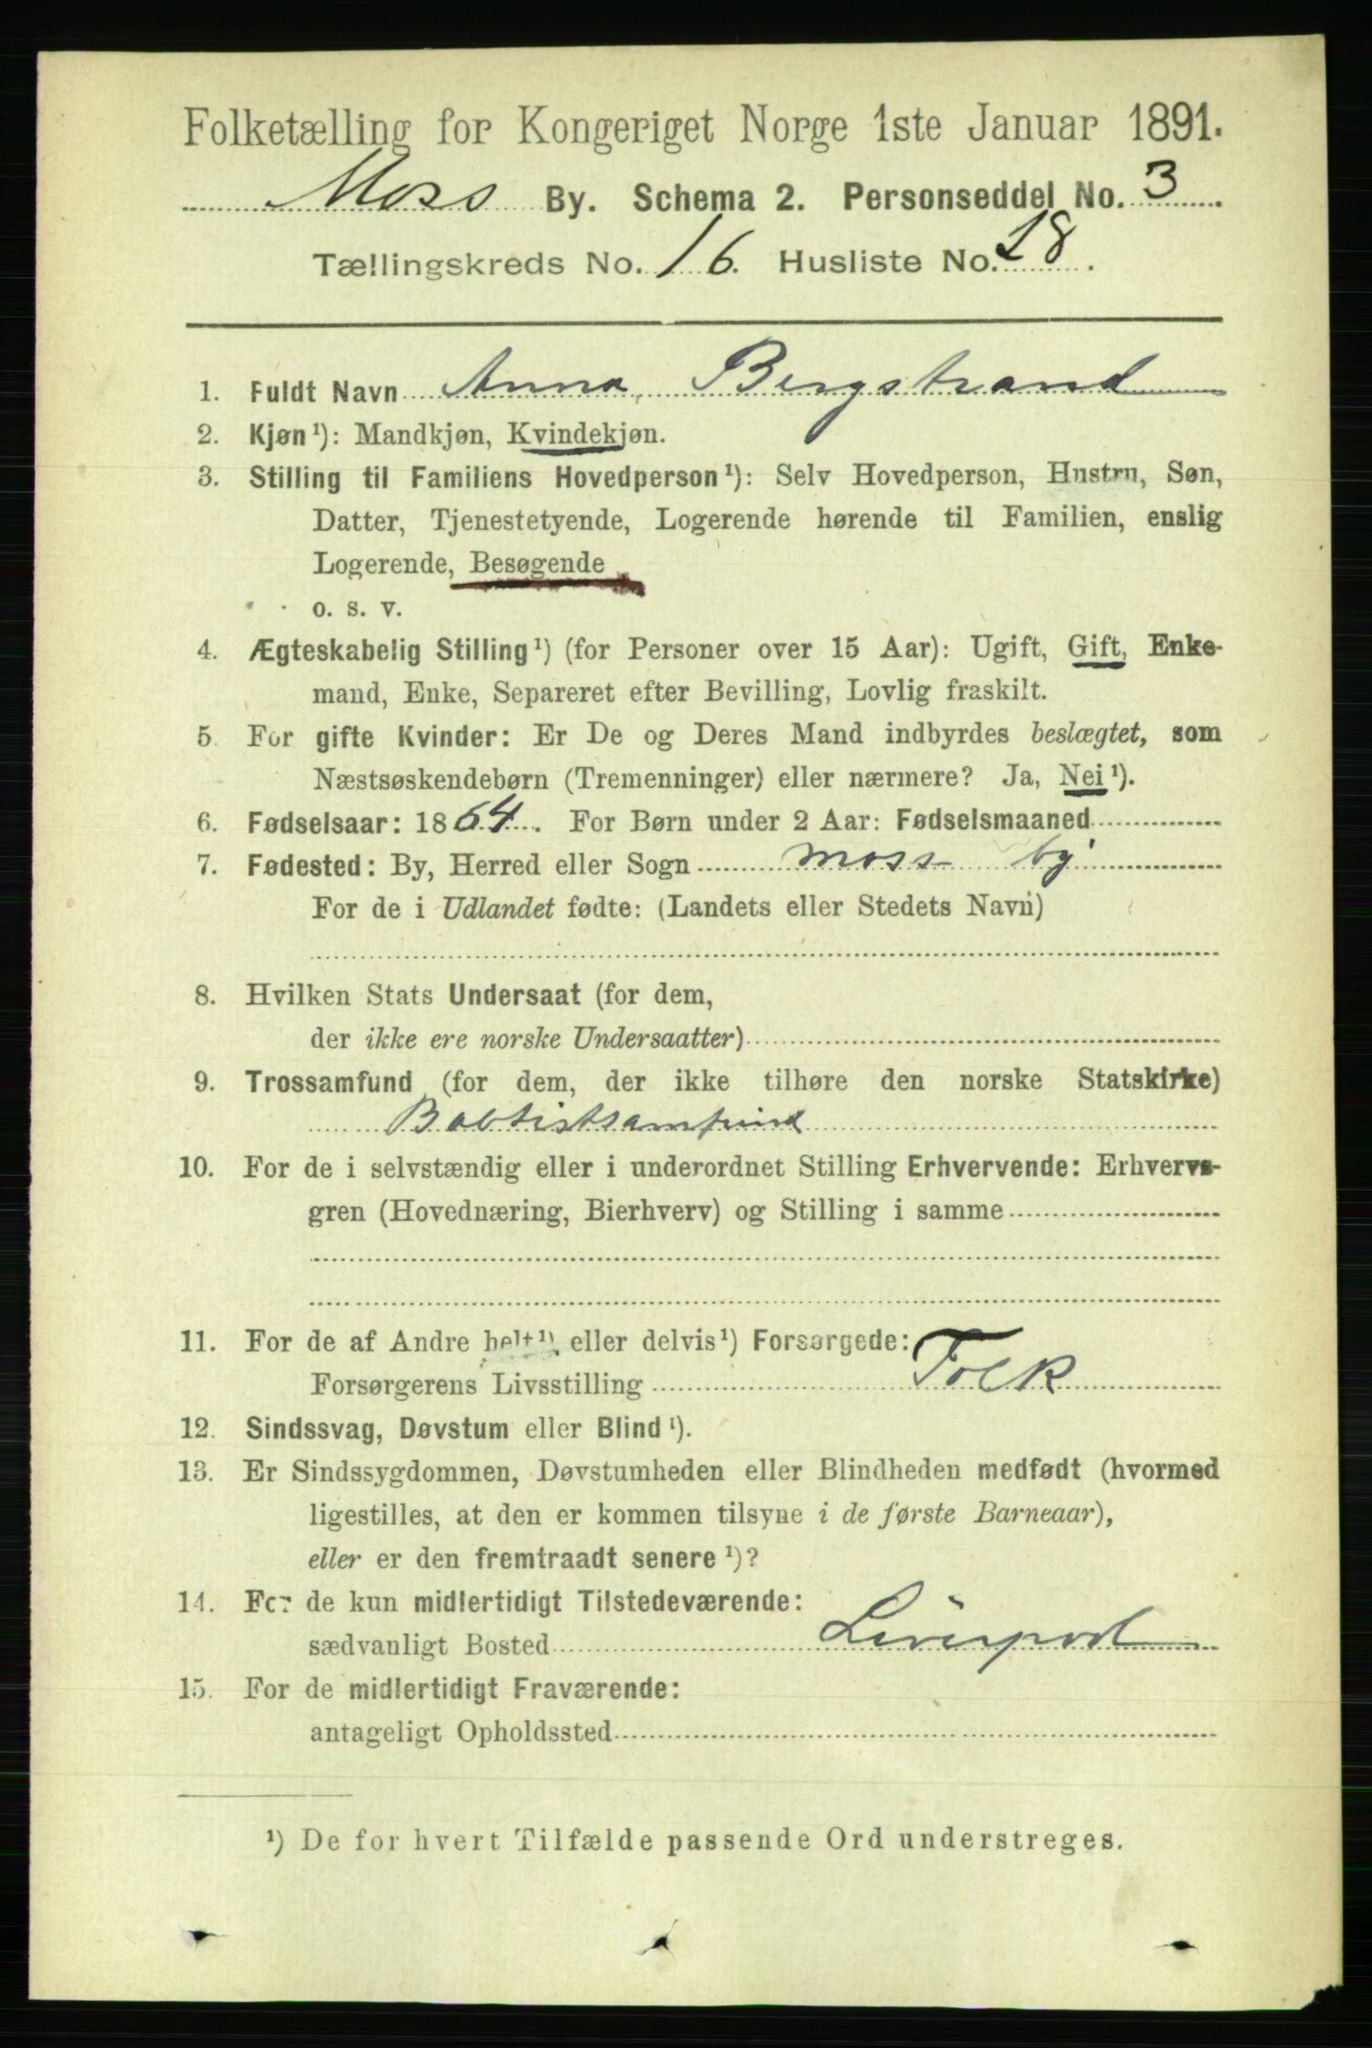 Folketælling for Kongeriget Norge 1ste Januar 1891.
Moss By. Schema 2. Personseddel No. 3
Tællingskreds No. 16. Husliste No. 18.
1. Fuldt Navn Anna Bergstrand
2. Kjøn ¹): Mandkjøn, Kvindekjøn.
3. Stilling til Familiens Hovedperson ¹): Selv Hovedperson, Hustru, Søn,
Datter, Tjenestetyende, Logerende hørende til Familien, enslig
Logerende, Besøgende
o. s. v.
4. Ægteskabelig Stilling ¹) (for Personer over 15 Aar): Ugift, Gift, Enke-
mand, Enke, Separeret efter Bevilling, Lovlig fraskilt.
5. For gifte Kvinder: Er De og Deres Mand indbyrdes beslægtet, som
Næstsøskendebørn (Tremenninger) eller nærmere? Ja, Nei ¹).
6. Fødselsaar: 1864. For Børn under 2 Aar: Fødselsmaaned
7. Fødested: By, Herred eller Sogn moss by
For de i Udlandet fødte: (Landets eller Stedets Navn)
8. Hvilken Stats Undersaat (for dem,
der ikke ere norske Undersaatter)
9. Trossamfund (for dem, der ikke tilhøre den norske Statskirke)
Babtistsamfund
10. For de i selvstændig eller i underordnet Stilling Erhvervende: Erhvervs-
gren (Hovednæring, Bierhverv) og Stilling i samme
11. For de af Andre helt ¹) eller delvis ¹) Forsørgede:
Forsørgerens Livsstilling Folk
12. Sindssvag, Døvstum eller Blind ¹).
13. Er Sindssygdommen, Døvstumheden eller Blindheden medfødt (hvormed
ligestilles, at den er kommen tilsyne i de første Barneaar),
eller er den fremtraadt senere ¹)?
14. For de kun midlertidigt Tilstedeværende:
sædvanligt Bosted Liverpool
15. For de midlertidigt Fraværende:
antageligt Opholdssted
¹) De for hvert Tilfælde passende Ord understreges.